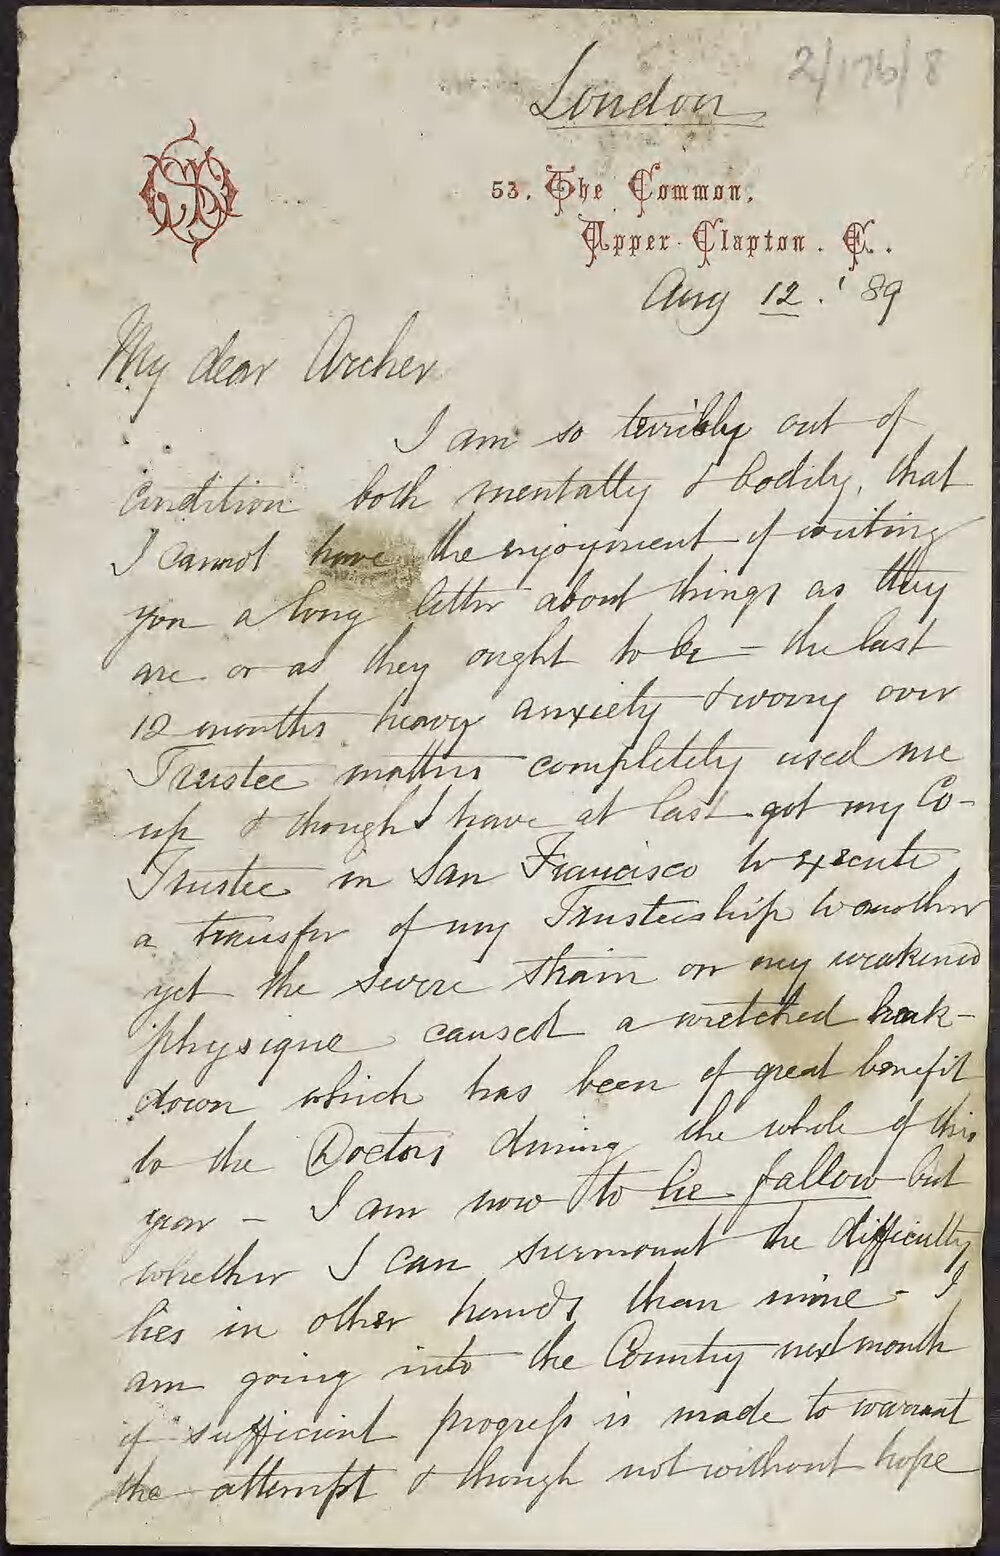 2/176/8
London
53. The Common.
Upper Clapton. E.
Aug 12. '89
My dear Archer
I am so terribly out of
condition both mentally & bodily, that
I cannot have the enjoyment of writing
you a long letter about things as they
are or as they ought to be - the last
12 months heavy anxiety & worry over
Trustee matters completely used me
up & though I have at last got my Co-
Trustee in San Francisco to execute
a transfer of my Trusteeship to another
yet the severe strain on my weakened
physique caused a wretched break-
down which has been of great benefit
to the Doctors during the whole of this
year - I am now to lie fallow but
whether I can surmount the difficulty
lies in other hands than mine - I
am going into the Country next month
if sufficient progress is made to warrant
the attempt & though not without hope